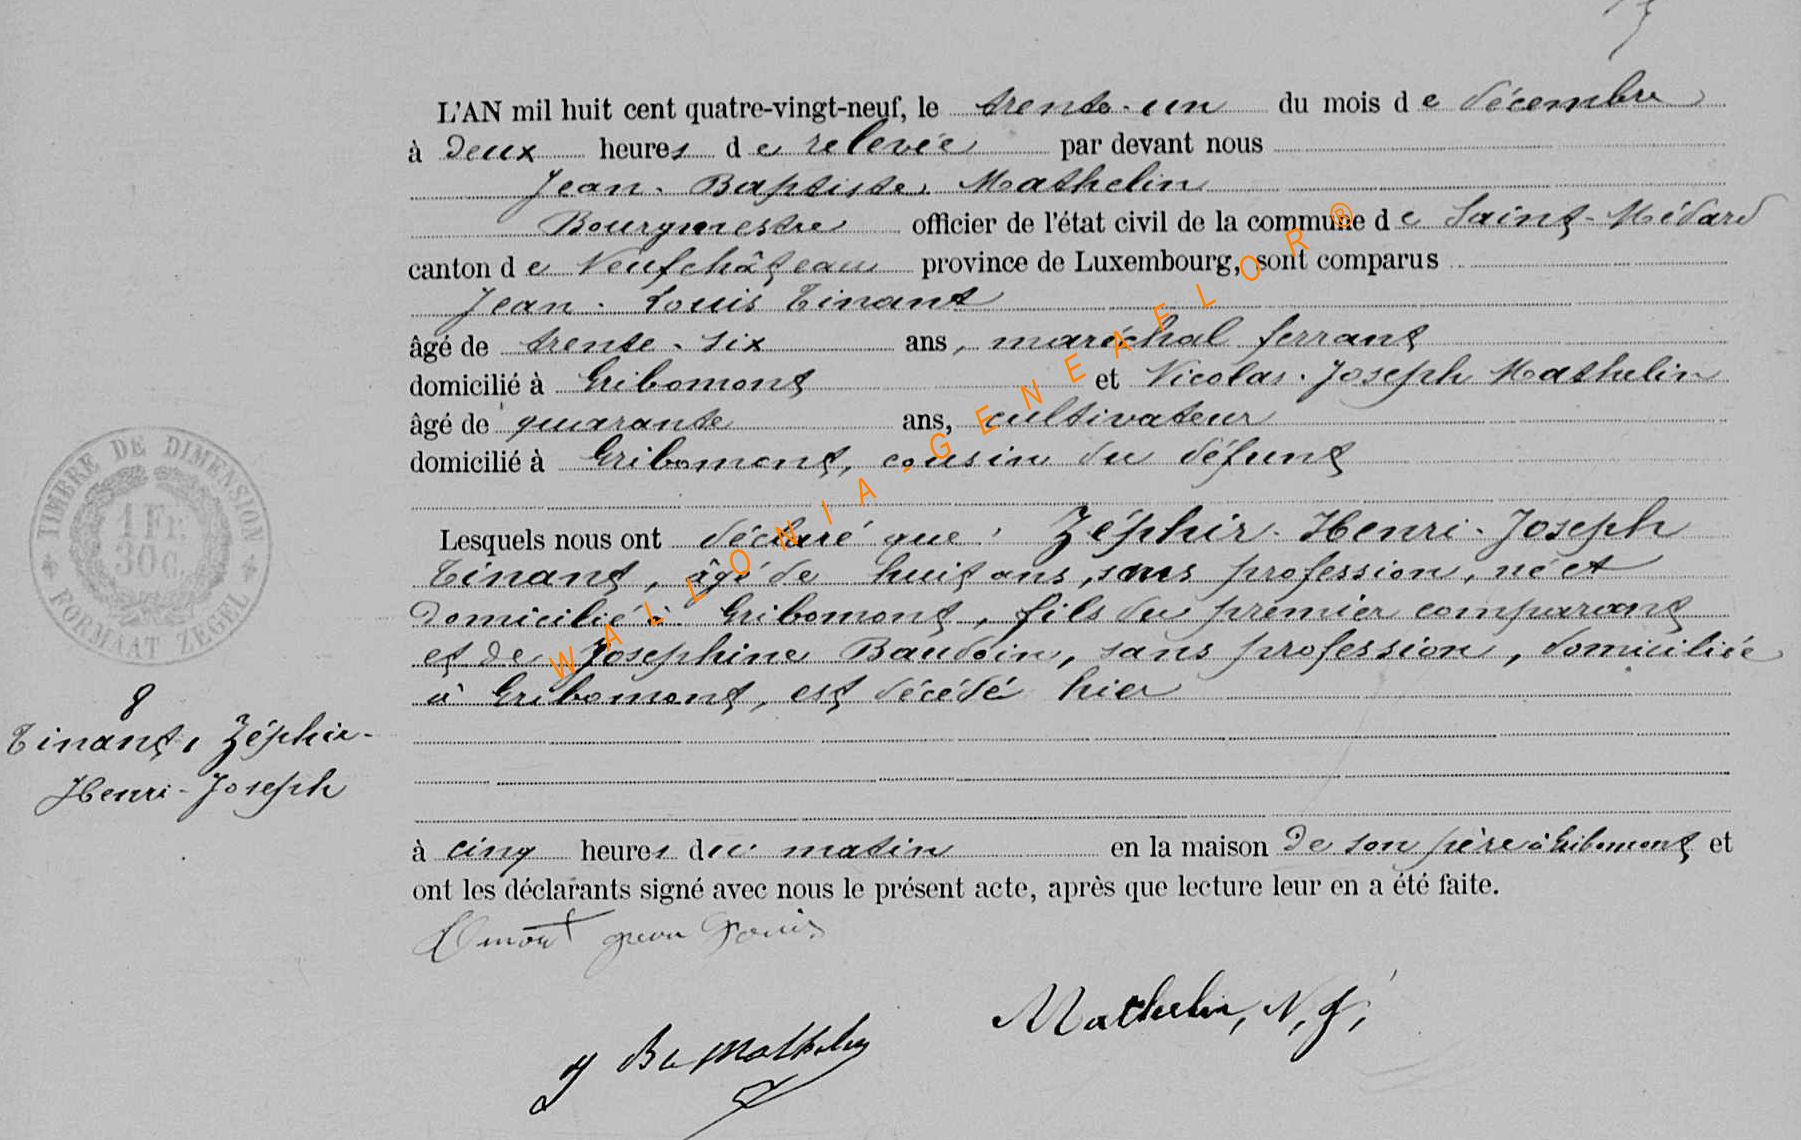 L'AN mil huit cent quatre-vingt-neuf, le trente-un du mois de décembre
à deux heures de relevée par devant nous
Jean-Baptiste Mathelin
Bourgmestre officier de l'état civil de la commune de Saint-Médard
canton de Neufchâteau province de Luxembourg, sont comparus
Jean-Louis Tinant
âgé de trente-six ans, maréchal ferrant
domicilié à Gribomont et Nicolas-Joseph Mathelin
âgé de quarante ans, cultivateur
domicilié à Gribomont, cousin du défunt
Lesquels nous ont déclaré que : Zéphir-Henri-Joseph
Tinant, âgé de huit ans, sans profession, né et
domicilié à Gribomont, fils du premier comparant
et de Josephine Baudoin, sans profession, domiciliée
à Gribomont, est décédé hier
à cinq heures du matin en la maison de son père à Gribomont et
ont les déclarants signé avec nous le présent acte, après que lecture leur en a été faite.
Mathelin, N, J,
J Bte Mathelin
TIMBRE DE DIMENSION
1 Fr.
30 C.
FORMAAT ZEGEL
8
Tinant, Zéphir-
Henri-Joseph
WALLONIA-GENEAFLOR®